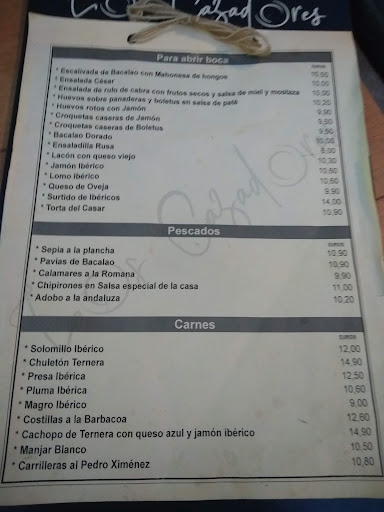 Los Cazadores
Para abrir boca
EUROS
* Escalivada de Bacalao con Mahonesa de hongos 10,00
* Ensalada César 10,00
* Ensalada de rulo de cabra con frutos secos y salsa de miel y mostaza 10,00
* Huevos sobre panaderas y boletus en salsa de paté 10,20
* Huevos rotos con Jamón 9,90
* Croquetas caseras de Jamón 9,90
* Croquetas caseras de Boletus 9,90
* Bacalao Dorado
* Ensaladilla Rusa
* Lacón con queso viejo 10,30
* Jamón Ibérico
* Lomo ibérico 10,60
* Queso de Oveja 9,90
* Surtido de Ibéricos 14,00
* Torta del Casar 10,90
Los Cazadores
Pescados
EUROS
* Sepia a la plancha 10,90
* Pavías de Bacalao 10,90
* Calamares a la Romana 9,90
* Chipirones en Salsa especial de la casa 11,00
* Adobo a la andaluza 10,20
Carnes
EUROS
* Solomillo Ibérico 12,00
* Chuletón Ternera 14,90
* Presa Ibérica 12,50
* Pluma Ibérica 10,60
* Magro Ibérico 9,00
* Costillas a la Barbacoa 12,60
* Cachopo de Ternera con queso azul y jamón ibérico 14,90
* Manjar Blanco 10,50
* Carrilleras al Pedro Ximénez 10,80